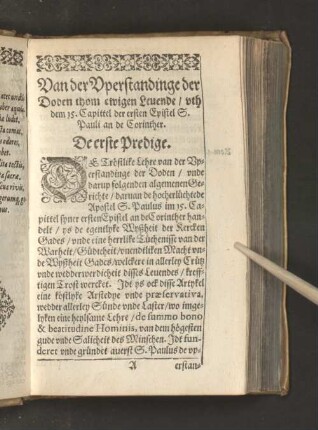 Van der Vperstandinge der
Doden thom ewigen Leuende / vth
dem 15. Capittel der ersten Epistel S.
Pauli an de Corinther.
De erste Predige.
DE Tröstlike Lehre van der Vp-
erstandinge der Doden / vnde
darup folgenden algemenen Ge-
richte / daruan de hocherlüchtede
Apostel S. Paulus im 15. Ca-
pittel syner ersten Epistel an de Corinther han-
delt / ys de egentlyke Wyßheit der Kercken
Gades / vnde eine herrlike Tüchenisse van der
Warheit / Güdicheit / vnendtliken Macht vn-
de Wyßheit Gades / welckere in allerley Crütz
vnde wedderwerdicheit disses Leuendes / kreff-
tigen Trost wercket. Idt ys ock disse Artykel
eine köstlyke Arstedye vnde præservativa,
wedder allerley Sünde vnde Laster / wo imge-
lyken eine heylsame Lehre / de summo bono
& beatitudine Hominis, van dem högesten
gude vnde Salicheit des Minschen. Idt fun-
deret vnde gründet auerst S. Paulus de vp-
A erstan-